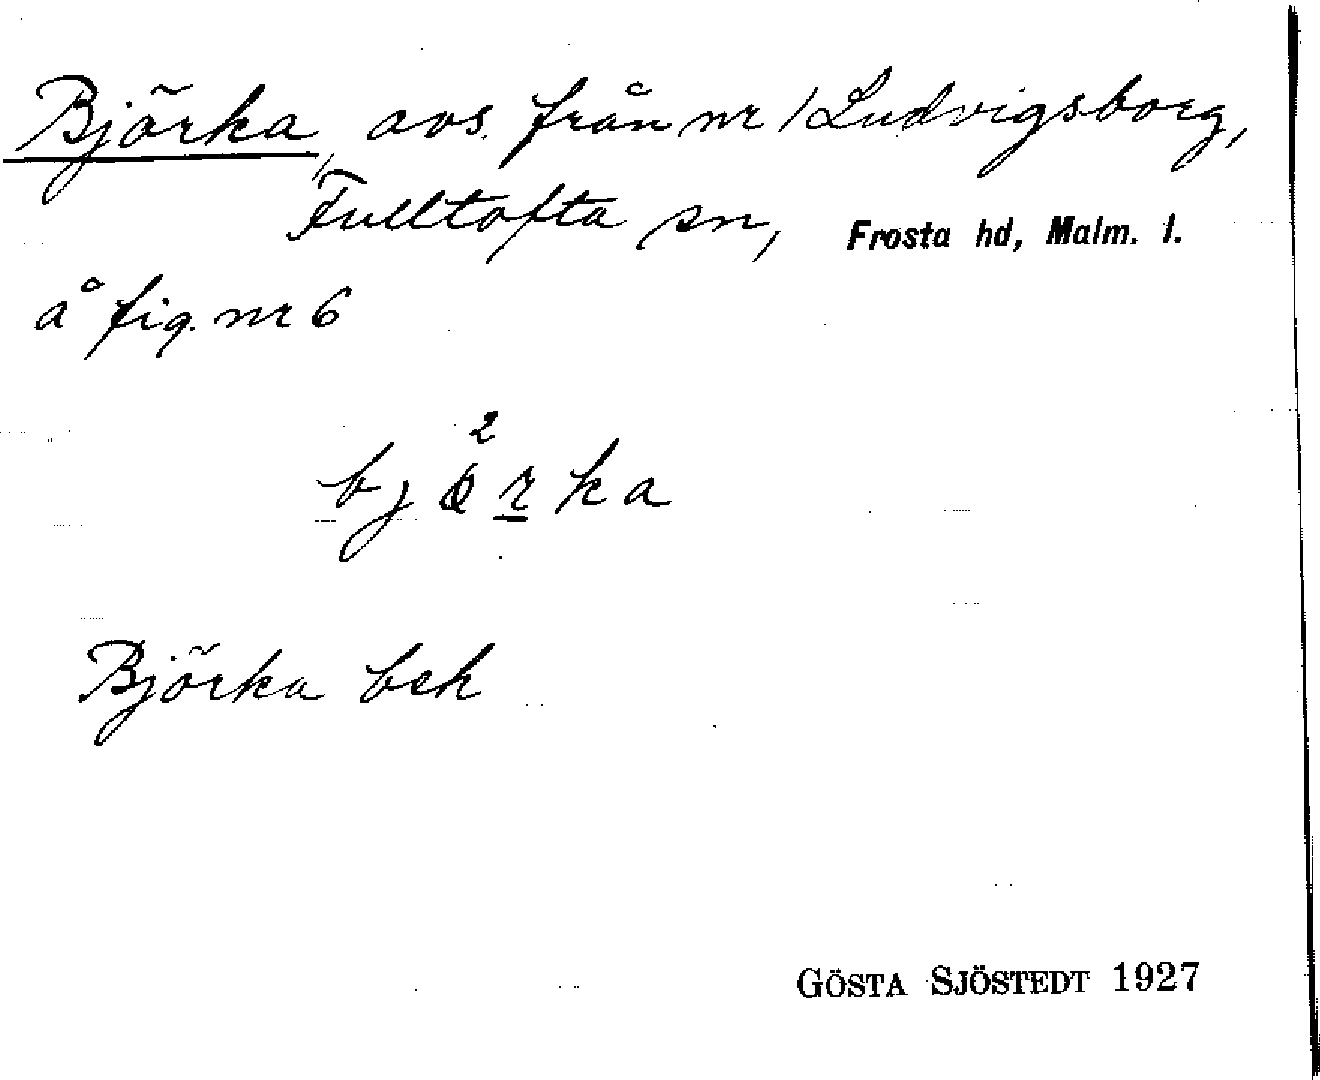 Björka, avs. från nr 1 Ludvigsborg,
Fulltofta sn, Frosta hd, Malm. l.
å fig. nr 6
2
björka
Björka bek
GÖSTA SJÖSTEDT 1927